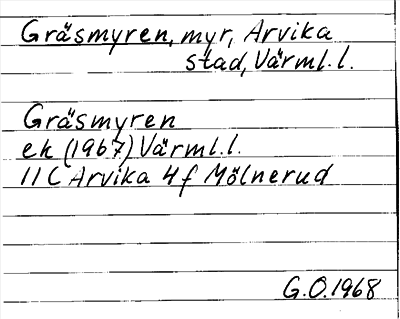 Gräsmyren, myr, Arvika
stad, Värml. l.
Gräsmyren
ek (1967) Värml. l.
11 C Arvika 4 f Mölnerud
G.O. 1968